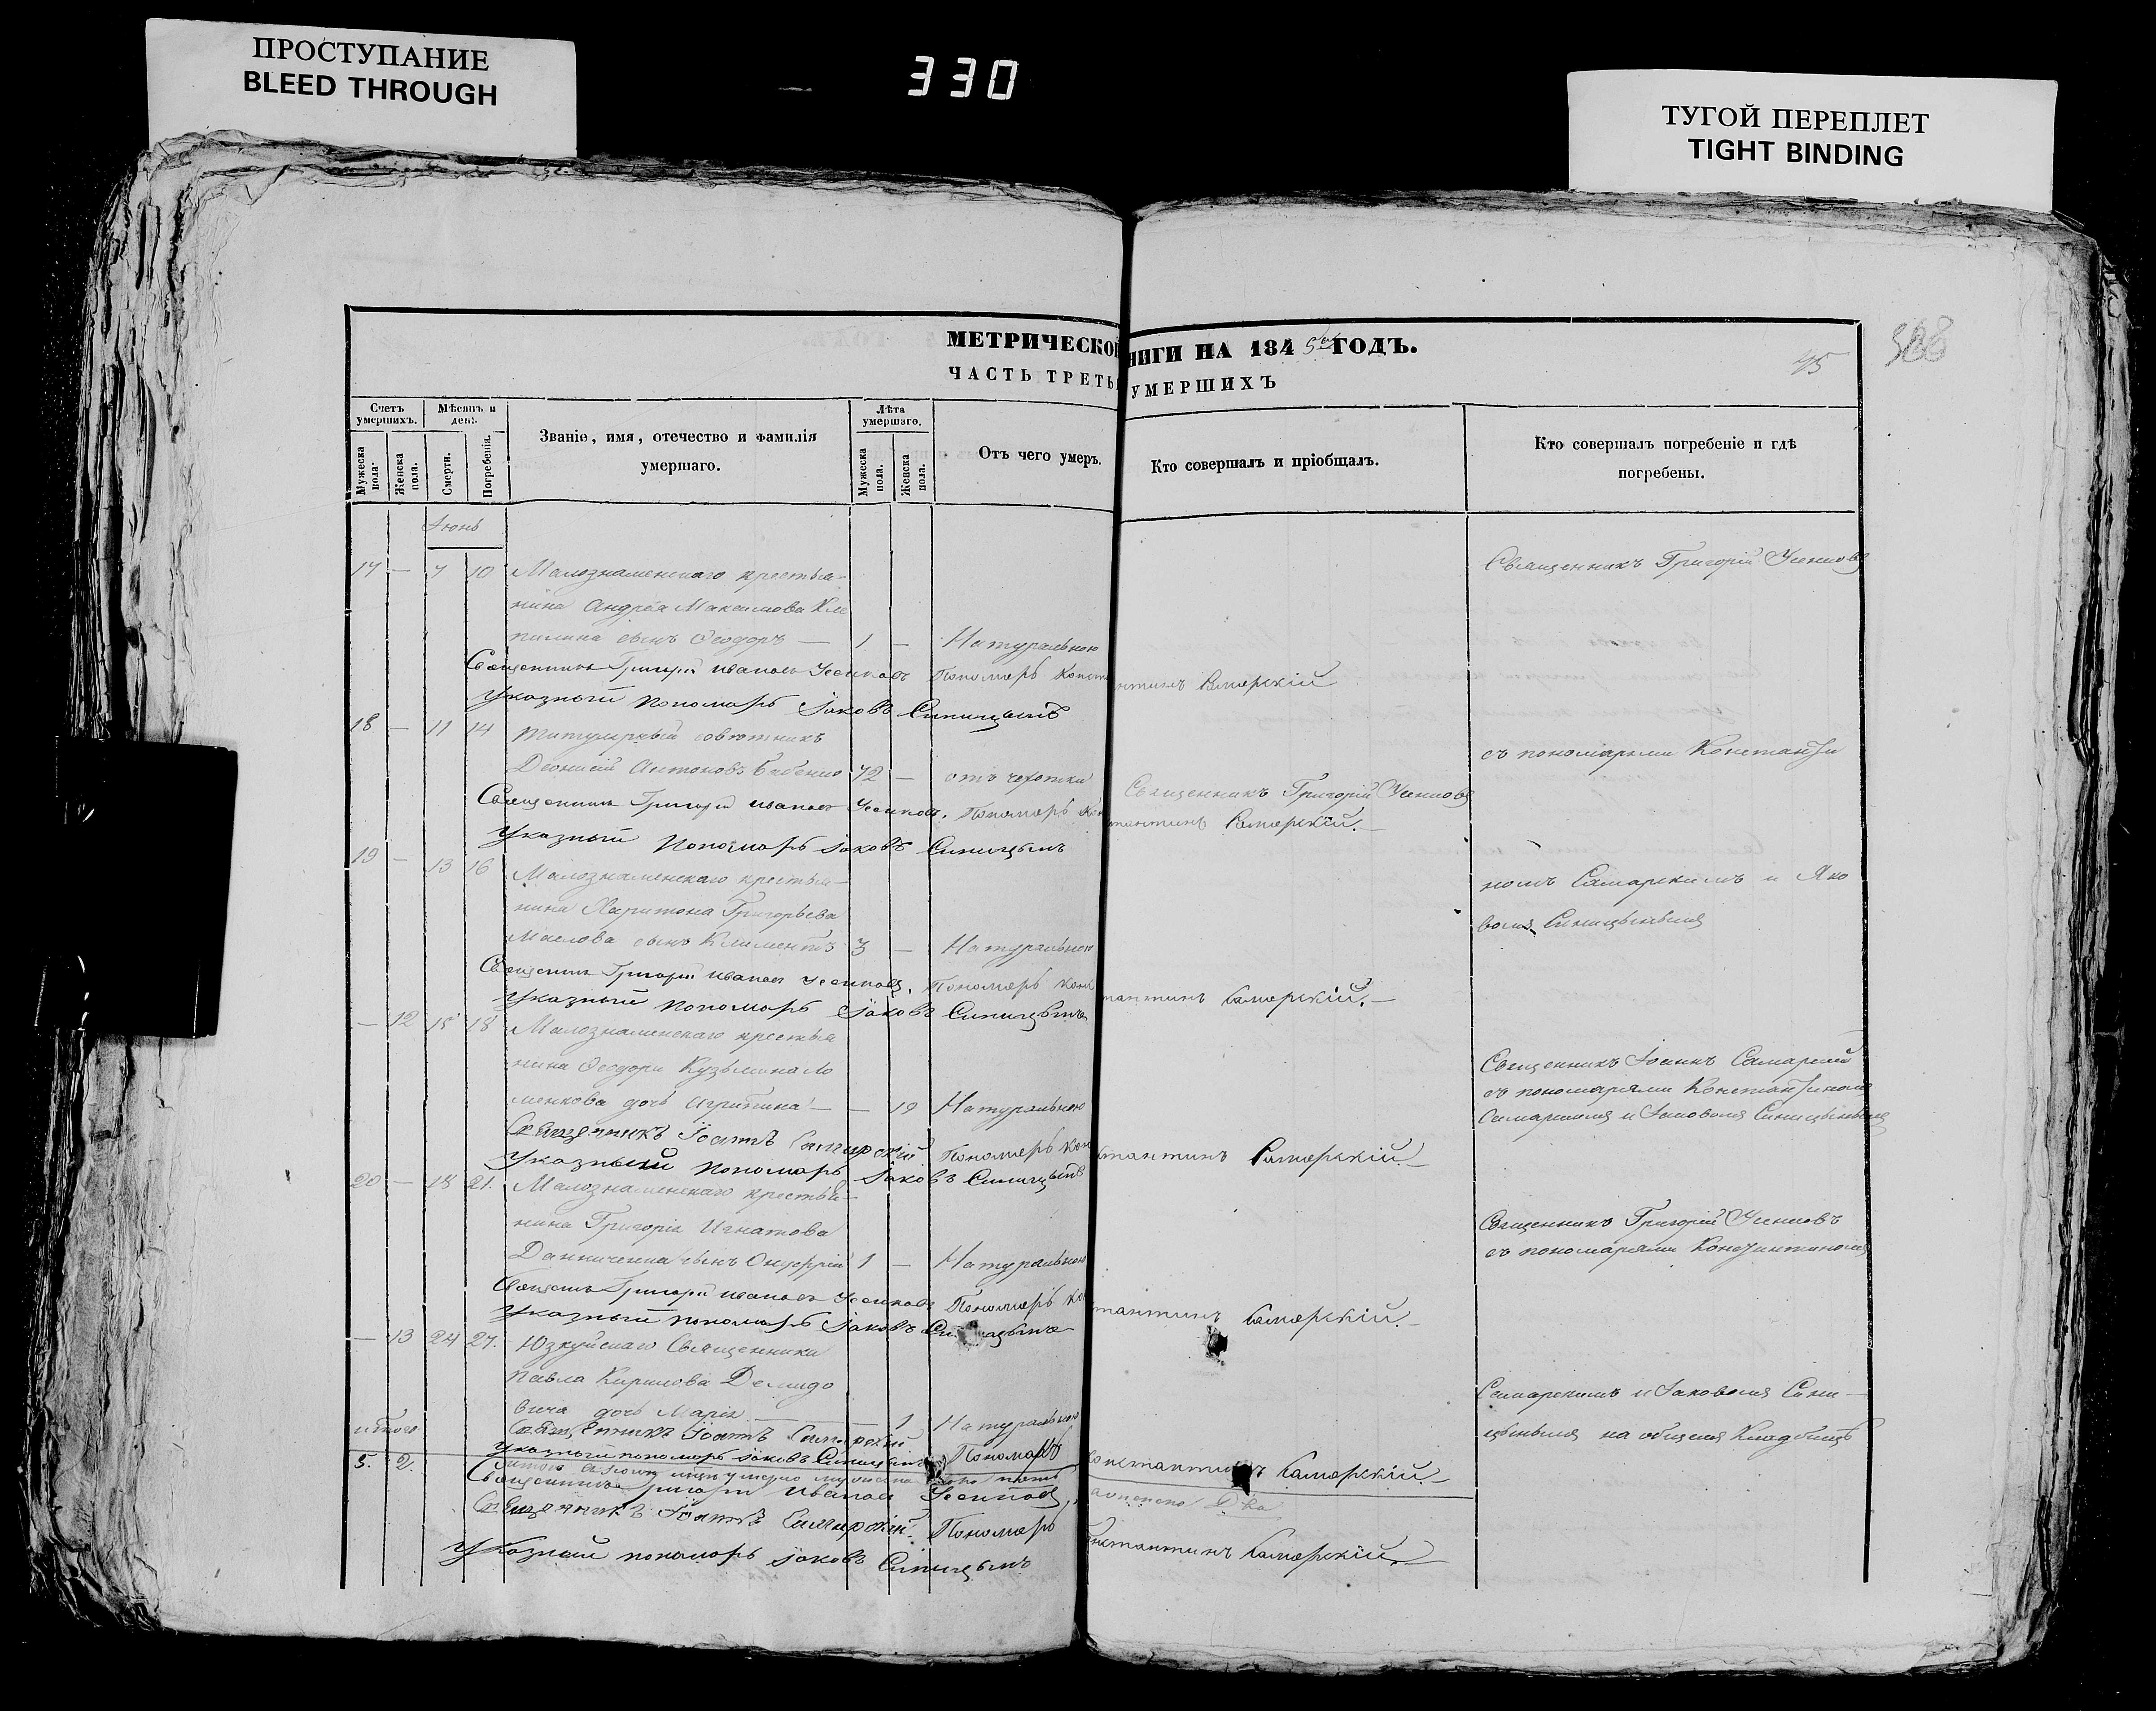 ПРОСТУПАНИЕ
BLEED THROUGH
330
ТУГОЙ ПЕРЕПЛЕТ
TIGHT BINDING
МЕТРИЧЕСКОЙ
НИГИ НА 1845 ГОДЪ.
ЧАСТЬ ТРЕТЬ
УМЕРШИХЪ
45
Счетъ умершихъ.
Мѣсяцъ и день
Званіе, имя, отечество и фамилія умершаго.
Лѣта умершаго.
Отъ чего умеръ.
Кто совершалъ и пріобщалъ.
Кто совершалъ погребеніе и гдѣ погребены.
Мужеска пола.
Женска пола.
Смерти.
Погребенія.
Мужеска пола.
Женска пола.
Іюнь
17 — 7 10 Малознаменскаго крестья-
нина Андрея Максимова
сынъ Ѳеодоръ — 1 — Натуральною
Священникъ Григорій Усиковъ
Священникъ Григорій Ивановъ Усиковъ Пономарь Константинъ Самарскій
Указный Пономарь Іаковъ Синицынъ
18 — 11 14 Титулярный совѣтникъ
Антоновъ 72 — отъ чахотки Священникъ Григорій Усиковъ
съ пономарями Константи
Священникъ Григорій Ивановъ Усиковъ. Пономарь Константинъ Самарскій.
Указный Пономарь Іаковъ Синицынъ
19 — 13 16 Малознаменскаго крестья-
нина Харитона Григорьева
Маслова сынъ Климентъ 3 — Натуральною
номъ Самарскимъ и Яко
вомъ Синицынымъ
Священникъ Григорій Ивановъ Усиковъ. Пономарь Константинъ Самарскій. —
Указный Пономарь Іаковъ Синицынъ
— 12 15 18 Малознаменскаго крестья
нина Ѳеодора Кузьмина
дочь Агрипина — — 19 Натуральною
Священникъ Іоаннъ Самарскій
съ пономарями Константиномъ
Самарскимъ и Іаковомъ Синицынымъ
Священникъ Іоаннъ Самарскій Пономарь Константинъ Самарскій. —
Указный Пономарь Іаковъ Синицынъ
20 — 18 21. Малознаменскаго крестья-
нина Григорія Игнатова
сынъ Онуфрій 1 — Натуральною
Священникъ Григорій Усиковъ
съ пономарями Константиномъ
Григорій Ивановъ Усиковъ Пономарь Константинъ Самарскій. —
Указный пономарь Іаковъ Синицынъ
— 13 24 27. Юзкуйскаго Священника
Павла Кирилова Демидо
вича дочь Марія — 1 Натуральною
Самарскимъ и Іаковомъ Сини-
цынымъ на общемъ Кладбищѣ
итого
5. 2.
Священникъ Іоаннъ Самарскій Пономарь Константинъ Самарскій. —
Указный пономарь Іаковъ Синицынъ
Священникъ Григорій Ивановъ Усиковъ,
Священникъ Іоаннъ Самарскій. Пономарь Константинъ Самарскій.
Указный пономарь Іаковъ Синицынъ